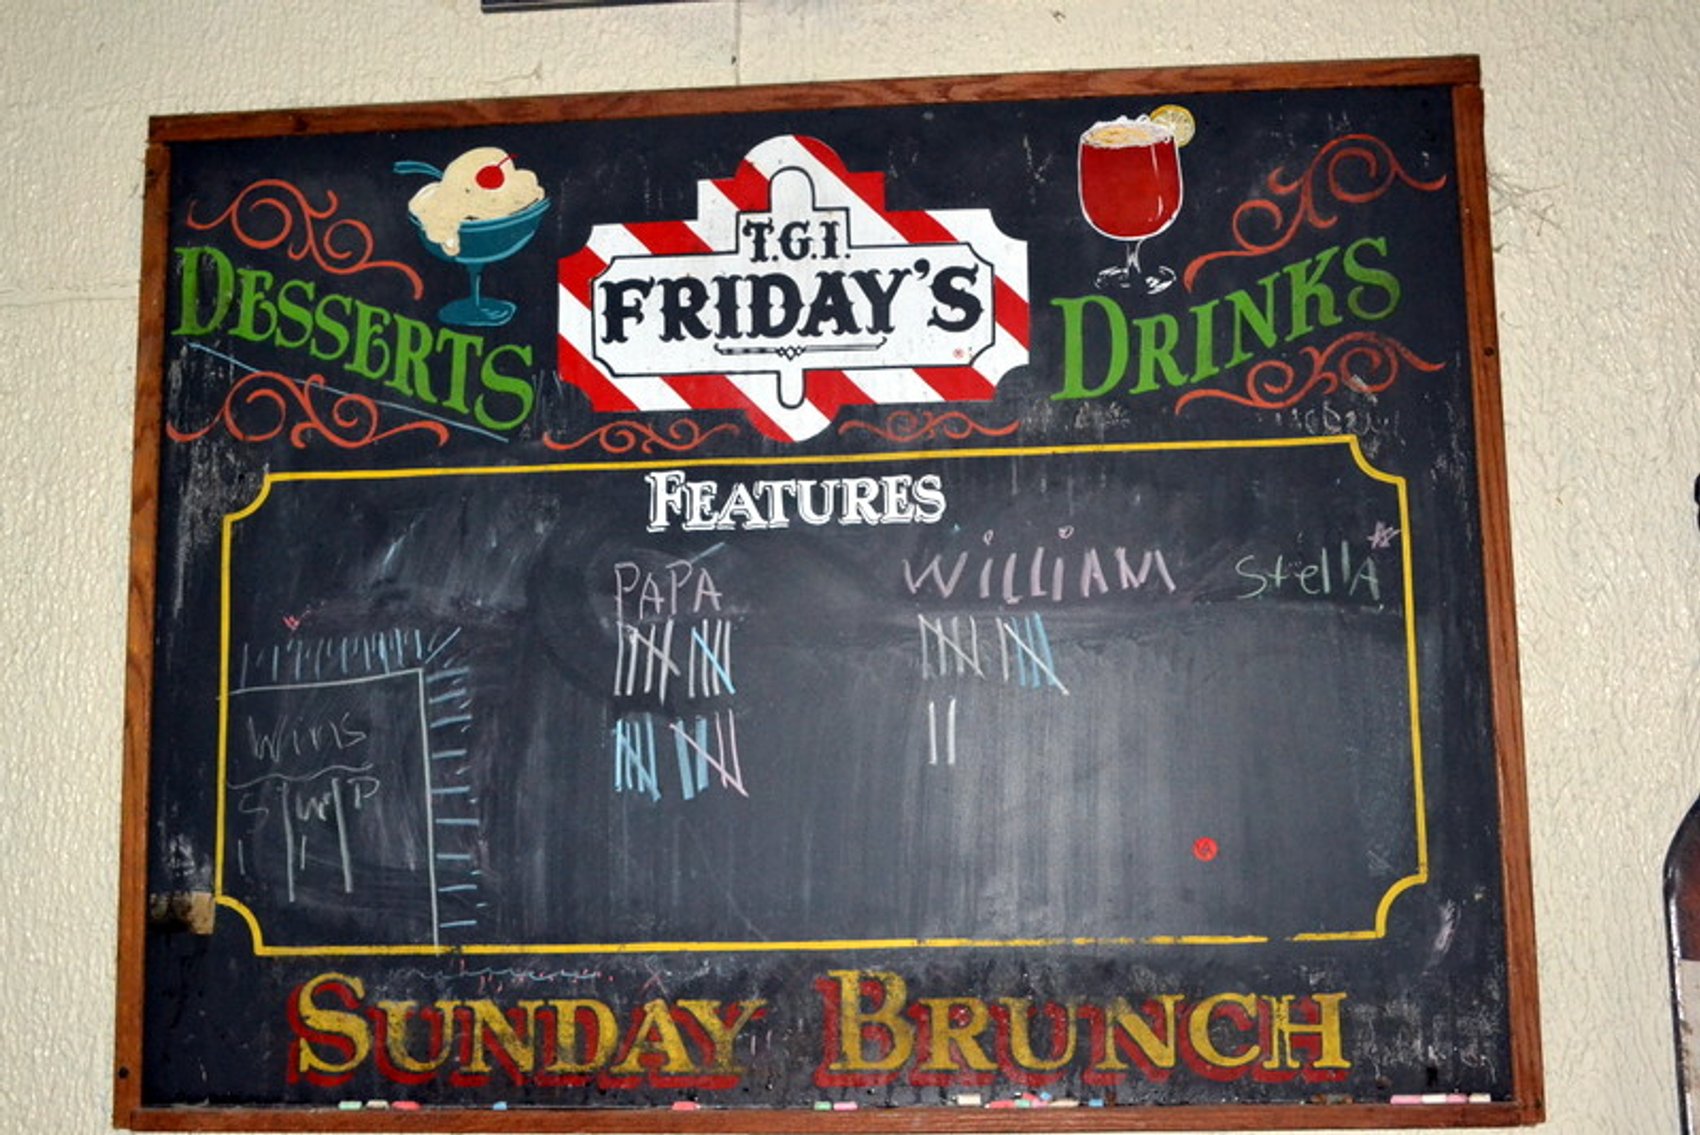 T.G.I.
FRIDAY'S
DESSERTS
DRINKS
FEATURES
PAPA
WiLLiAM
StellA
Wins
SUNDAY BRUNCH